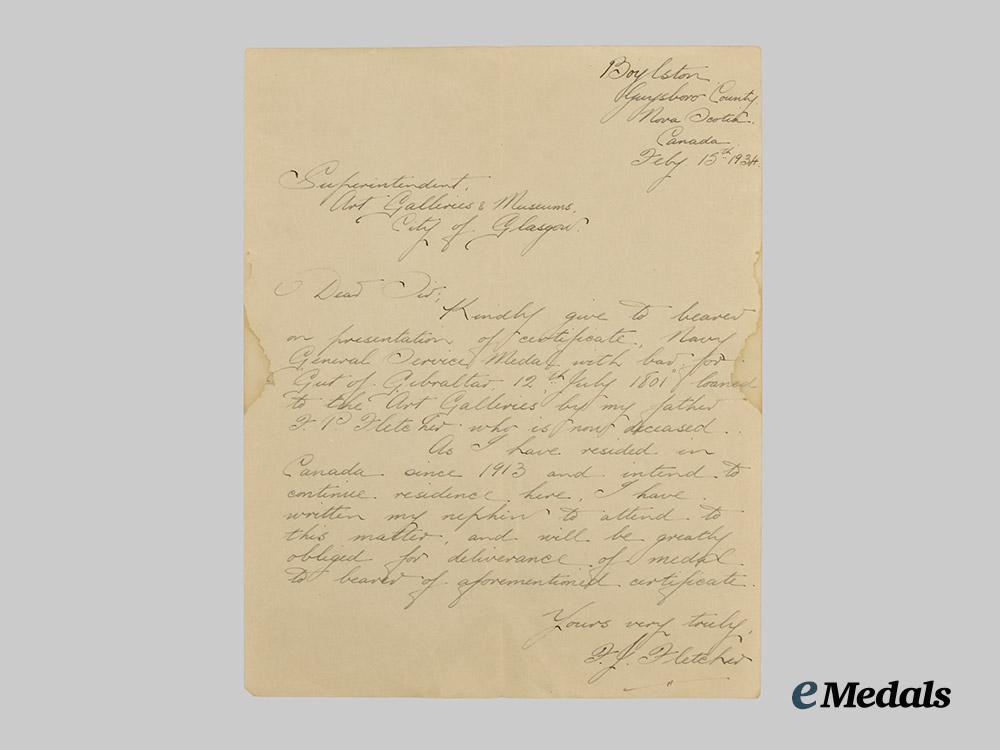 Boylston
Guysboro County.
Nova Scotia.
Canada
Feby 15th 1934.
Superintendent,
Art Galleries & Museums,
City of Glasgow.
Dear Sir;
Kindly give to bearer
on presentation of certificate, Navy
General Service Medal with bar for
Gut of Gibraltar, 12th July 1801 loaned
to the Art Galleries by my father
F. P. Fletcher who is now deceased.
As I have resided in
Canada since 1913 and intend to
continue residence here, I have
written my nephew to attend to
this matter, and will be greatly
obliged for deliverance of medal
to bearer of aforementioned certificate.
Yours very truly,
F. J. Fletcher
eMedals